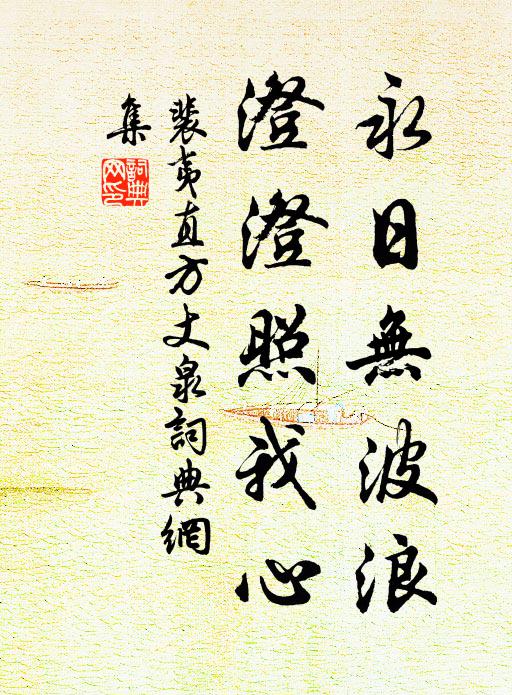 永日無波浪
澄澄照我心
裴夷直方丈泉詞典網
集
詞典網印